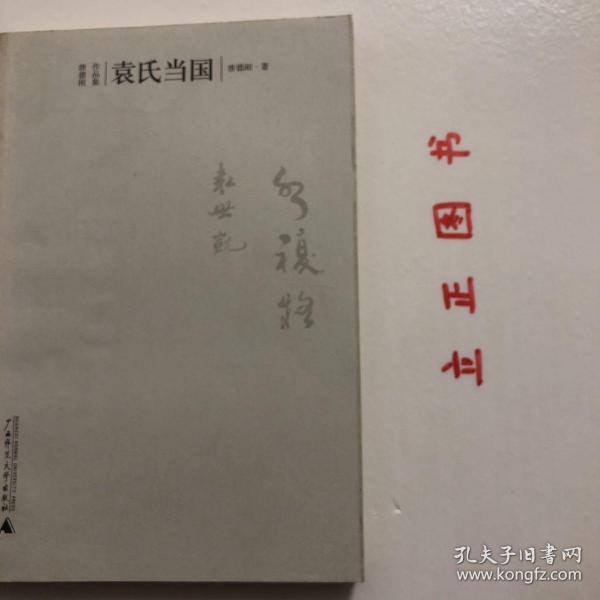 唐德刚
作品集
袁氏当国
唐德刚·著
袁世凯
广西师范大学出版社
GUANGXI NORMAL UNIVERSITY PRESS
立正图书
孔夫子旧书网
www.kongfz.com